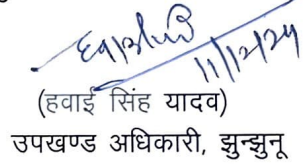 11/12/24
(हवाई सिंह यादव)
उपखण्ड अधिकारी, झुन्झुनू